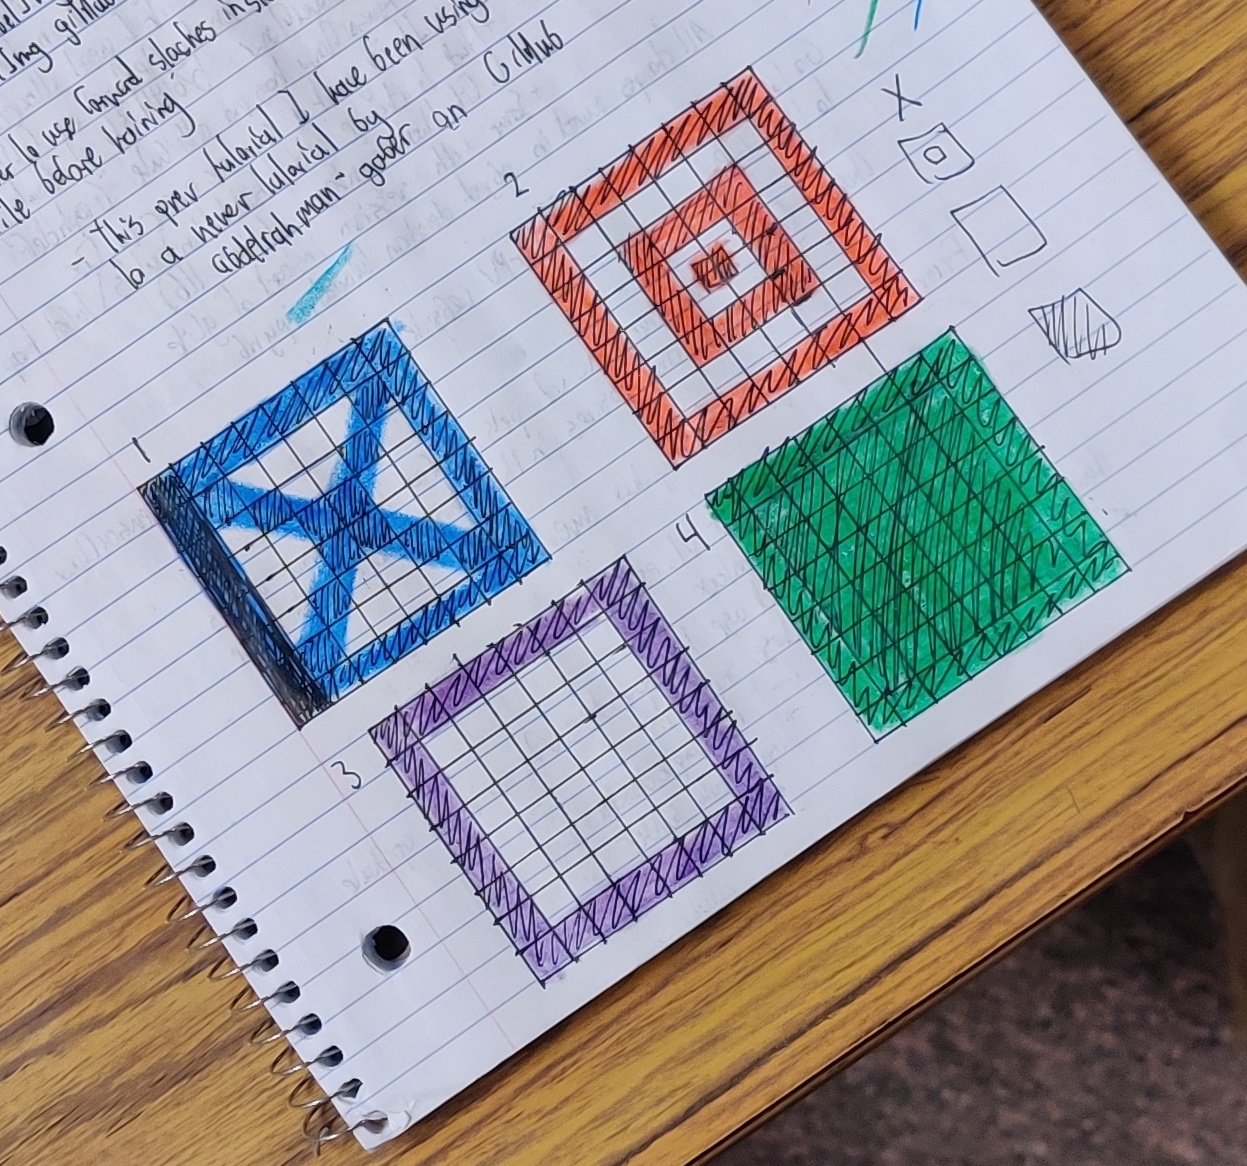 Img github
use forward slashes
file before training
- This prev tutorial I have been using
to a newer tutorial by
abdelrahman-gaber on GitHub
2
1
4
3